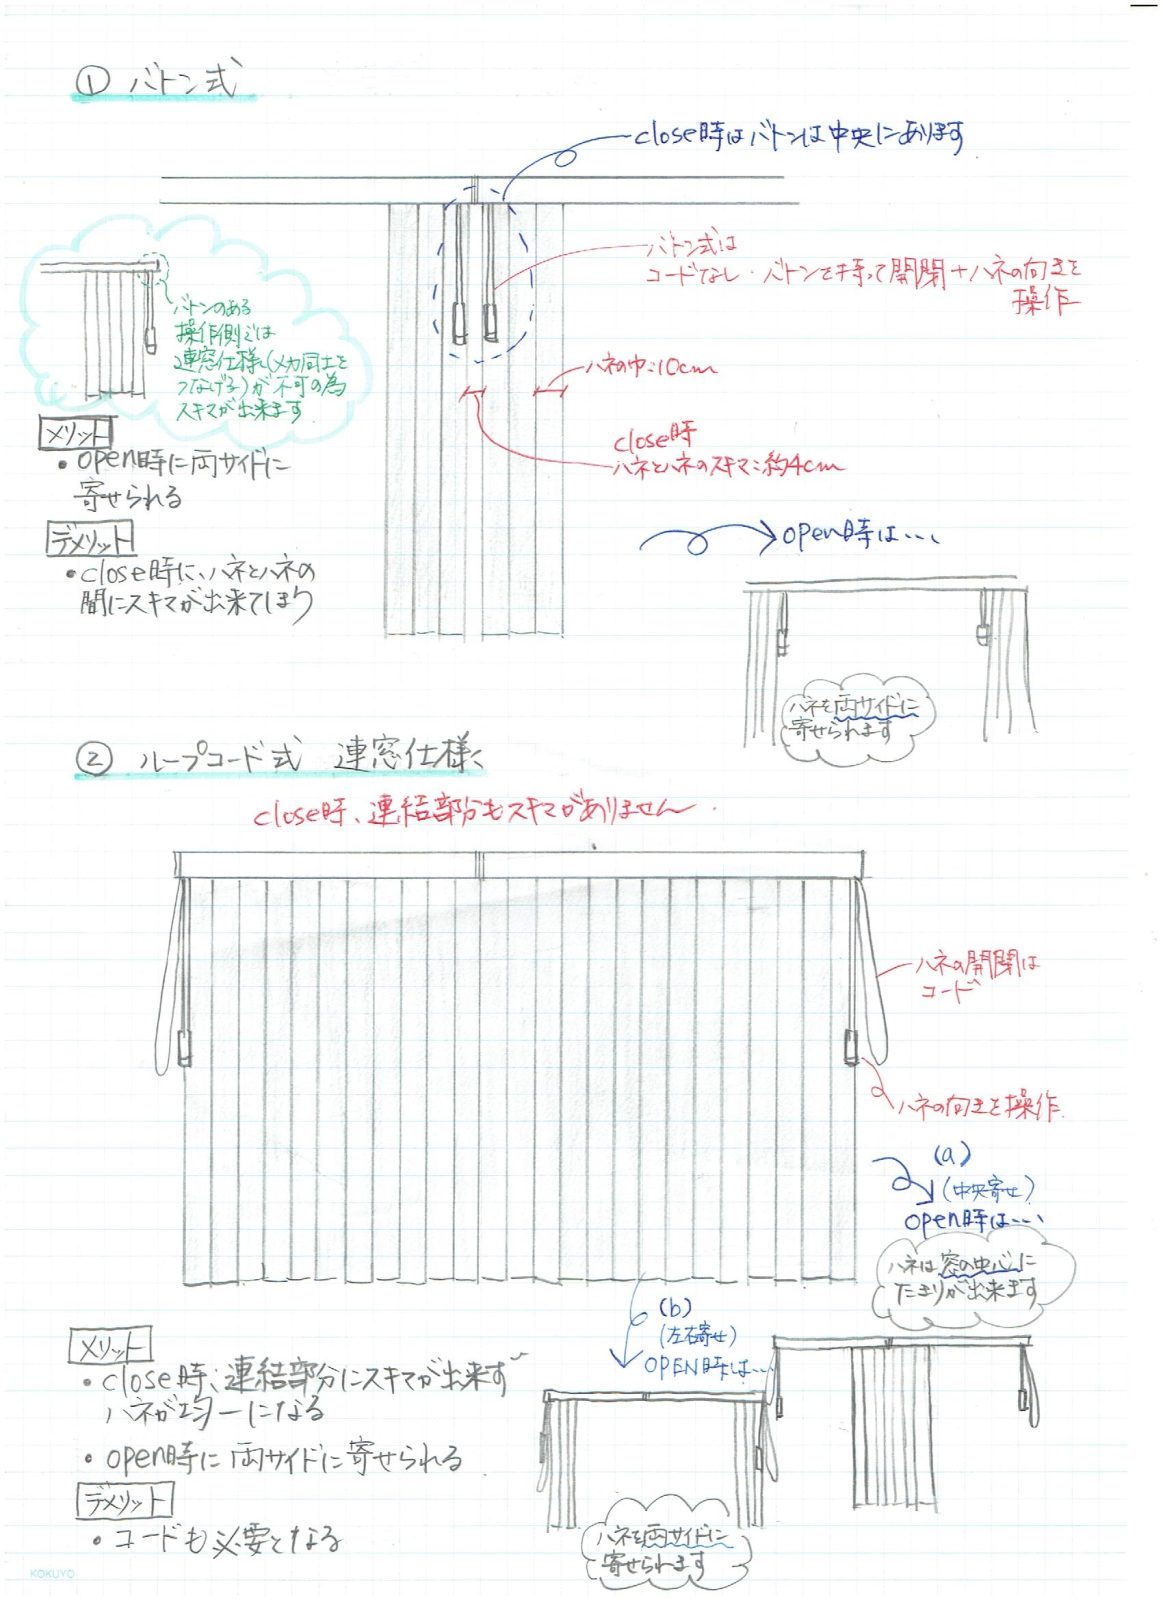 ① バトン式
close時はバトンは中央にあります
バトン式は
コードなし・バトンを持って開閉+ハネの向きを
操作
バトンのある
操作側では
連窓仕様(メカ同士を
つなげる)が不可の為
スキマが出来ます
ハネの巾:10cm
close時
ハネとハネのスキマ:約4cm
メリット
・open時に両サイドに
寄せられる
デメリット
・close時に、ハネとハネの
間にスキマが出来てしまう
open時は…
ハネを両サイドに
寄せられます
② ループコード式 連窓仕様
close時、連結部分もスキマがありません
ハネの開閉は
コード
ハネの向きを操作
(a)
(中央寄せ)
open時は…
ハネは窓の中心に
たまりが出来ます
(b)
(左右寄せ)
OPEN時は…
メリット
・close時、連結部分にスキマが出来ず
ハネが均一になる
・open時に両サイドに寄せられる
デメリット
・コードも必要となる
ハネを両サイドに
寄せられます
KOKUYO